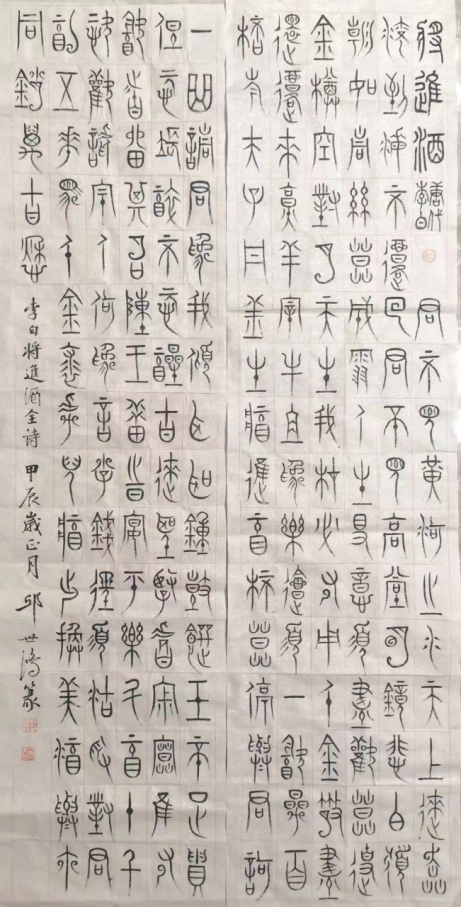 將進酒唐代李白君不見黃河之水天上來奔
流到海不復回君不見高堂明鏡悲白髮
朝如青絲暮成雪人生得意須盡歡莫使
金樽空對月天生我材必有用千金散盡
還復來烹羊宰牛且為樂會須一飲三百
杯岑夫子丹丘生將進酒杯莫停與君歌
一曲請君為我傾耳聽鐘鼓饌玉不足貴
但願長醉不願醒古來聖賢皆寂寞惟有
飲者留其名陳王昔時宴平樂斗酒十千
恣歡謔主人何為言少錢徑須沽取對君
酌五花馬千金裘呼兒將出換美酒與爾
同銷萬古愁李白將進酒全詩甲辰歲正月邱世鴻篆